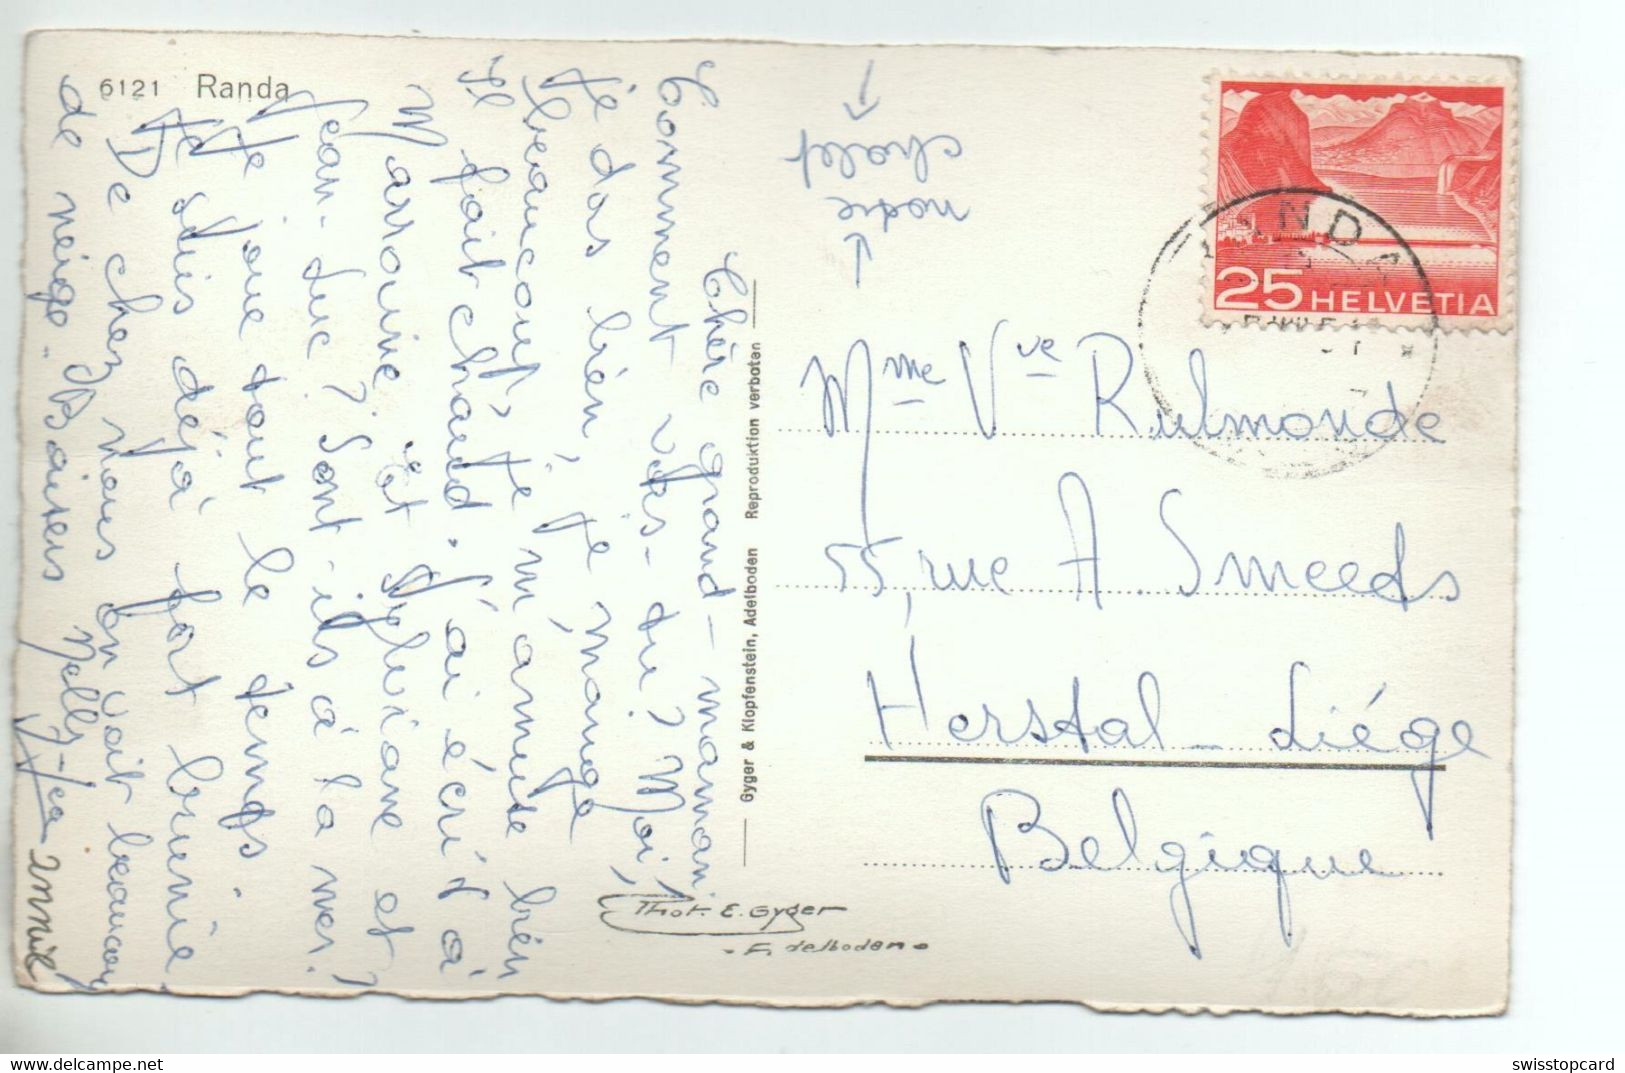 6121 Randa
Chère grand-maman.
Comment vas-tu? Moi,
je vas bien, je mange
beaucoup, je m'amuse bien
Il fait chaud. J'ai écrit à
Marraine et Sylviane et
Jean-Luc? Sont-ils à la mer?
Je joue tout le temps.
Je suis déjà fort brunie
De chez nous on voit beaucoup
de neige. Baisers Nelly-
notre
chalet
Gyger & Klopfenstein, Adelboden Reproduktion verboten
Phot. E. Gyger
- Adelboden -
25 HELVETIA
RANDA
Mme Vve Rulmonde
55, rue A. Smeeds
Herstal - Liége
Belgique
swisstopcard